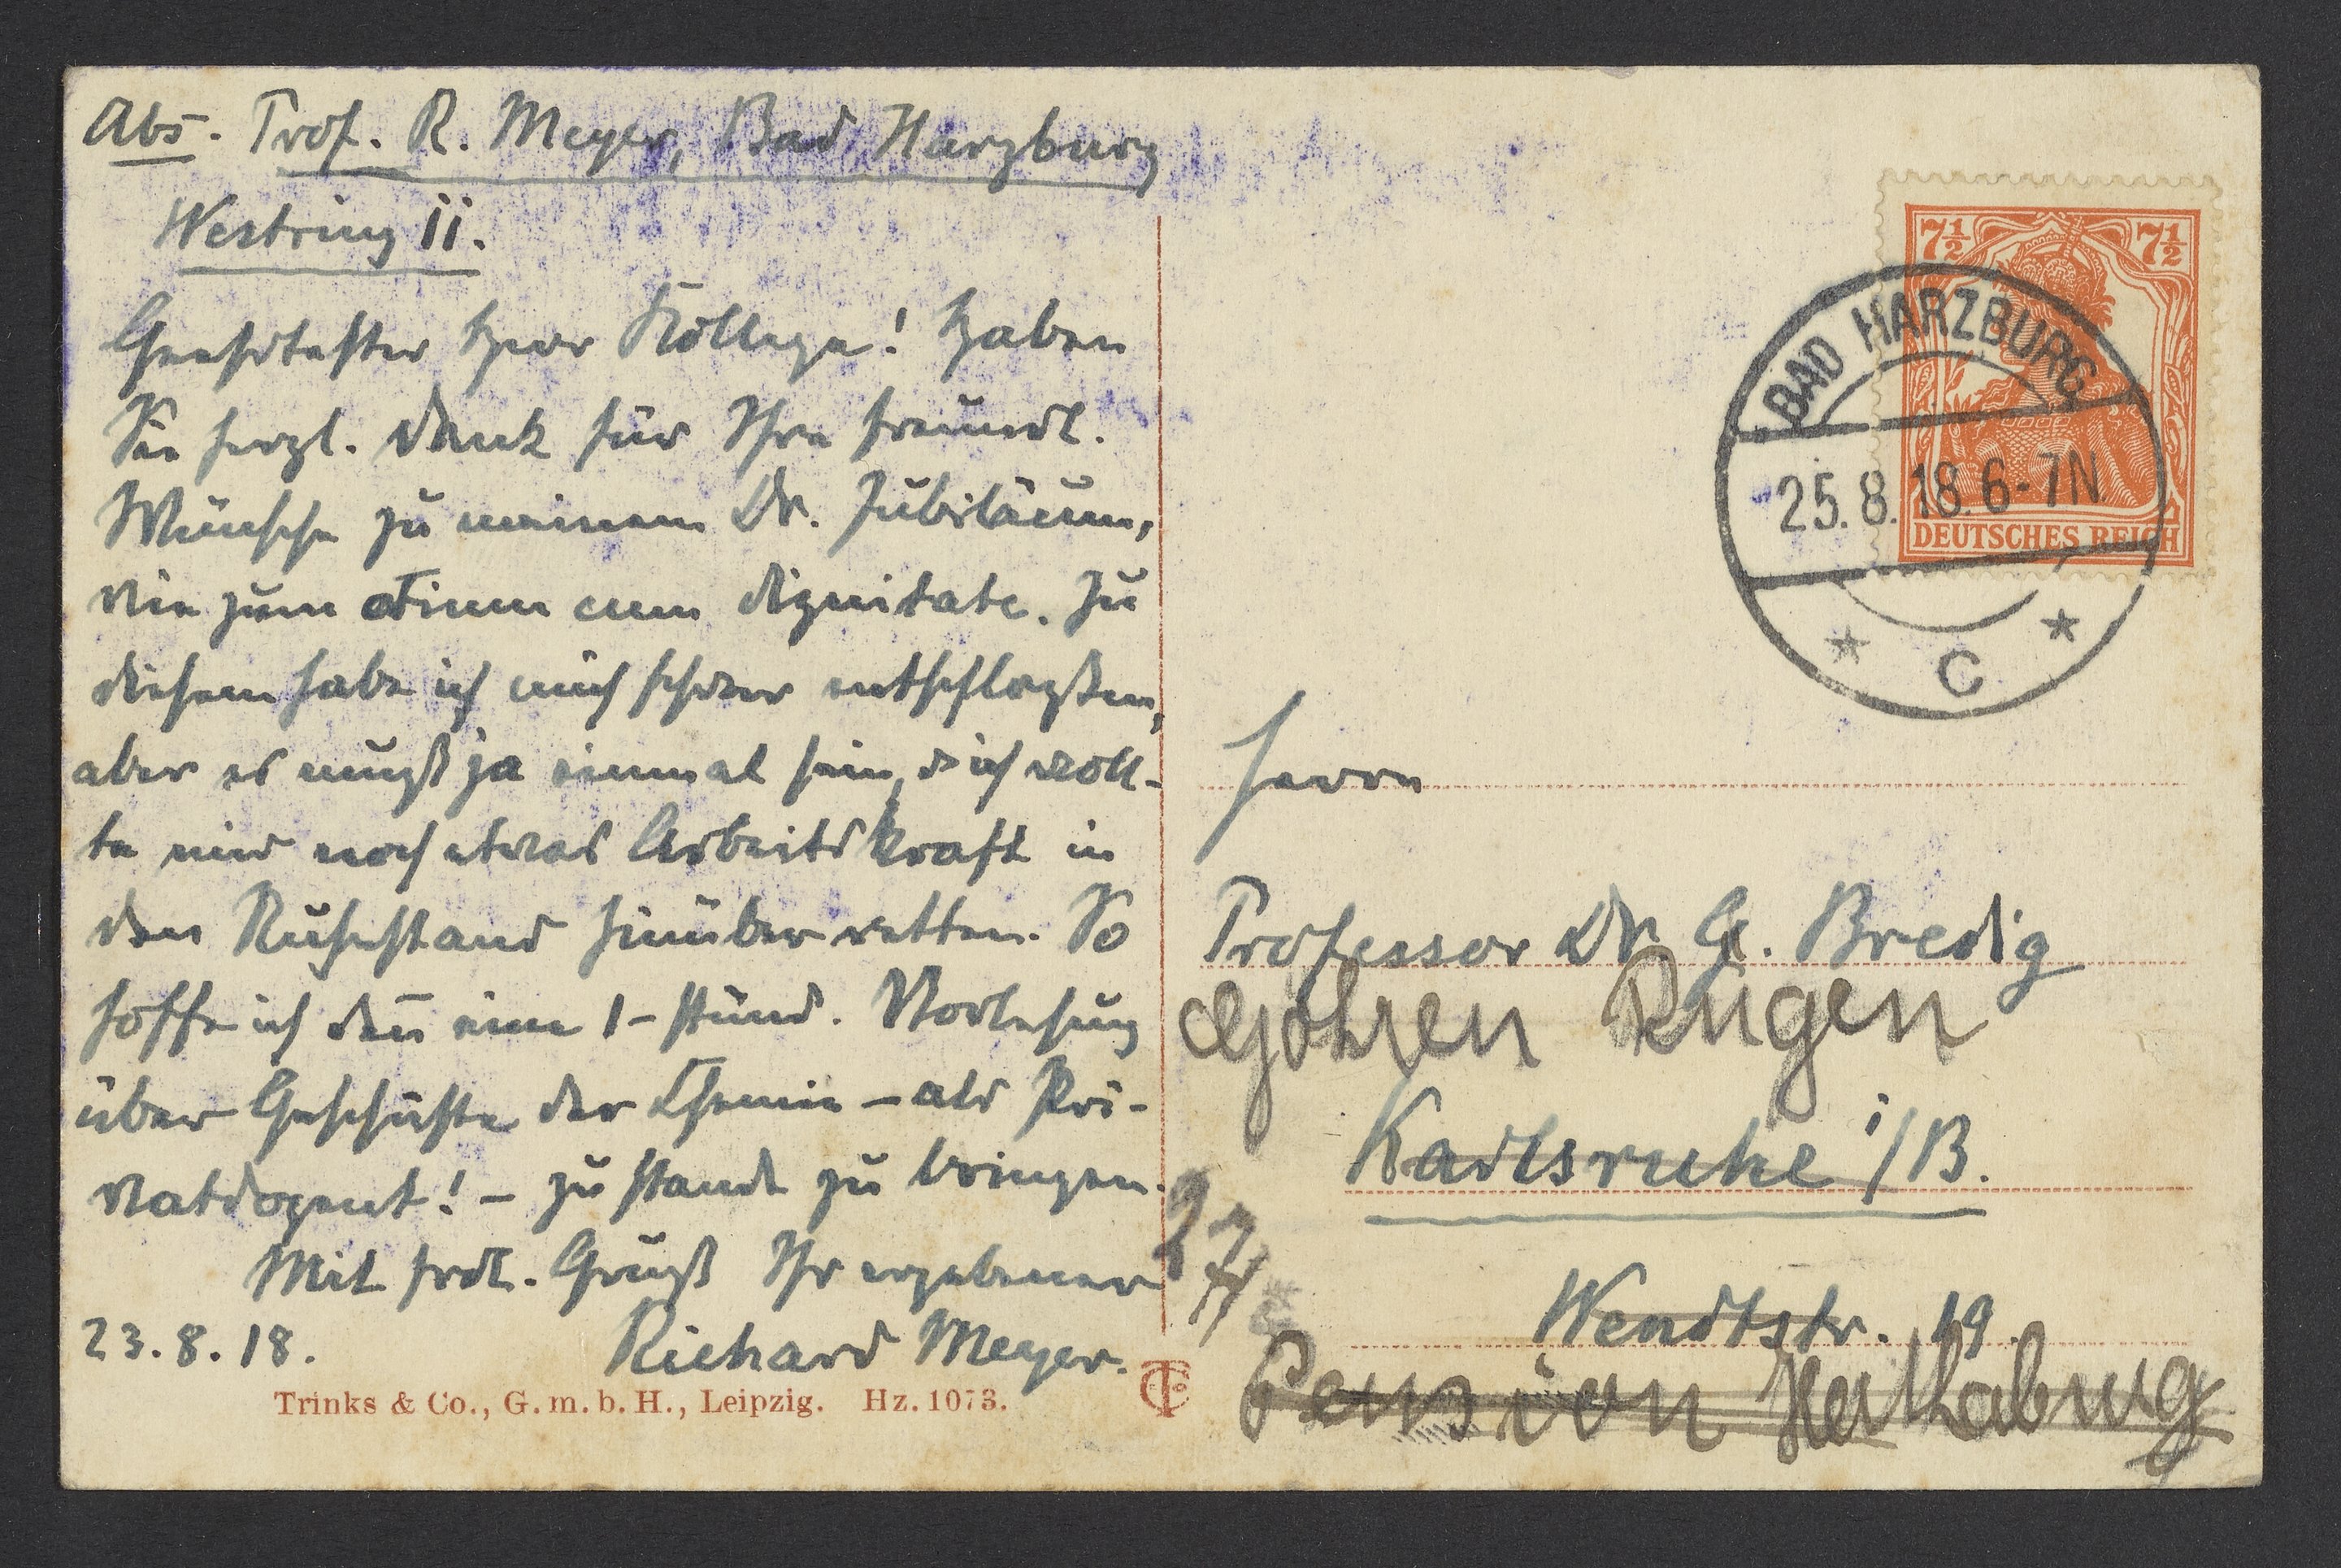 Abs. Prof. R. Meyer, Bad Harzburg
Westring 11.
Geehrtester Herr Kollege! Haben
Sie herzl. Dank für Ihre freundl.
Wünsche zu meinem Dr. Jubiläum,
wie zum otium cum dignitate. Zu
diesem habe ich mich schwer entschloßen,
aber es muß ja einmal sein, & ich woll-
te mir noch etwas Arbeitskraft in
den Ruhestand hinüber retten. So
hoffe ich den̅ eine 1-stünd. Vorlesung
über Geschichte der Chemie – als Pri-
vatdozent! – zu stande zu bringen.
Mit frdl. Gruß Ihr ergebener
23.8.18. Richard Meyer.
Trinks & Co., G. m. b. H., Leipzig. Hz. 1073.
7½ 7½
DEUTSCHES REICH
BAD HARZBURG
25.8.18.6-7N
* C *
Herrn
Professor Dr. G. Bredig
Göhren Rügen
Karlsruhe i/B.
Wendtstr. 19.
Pension